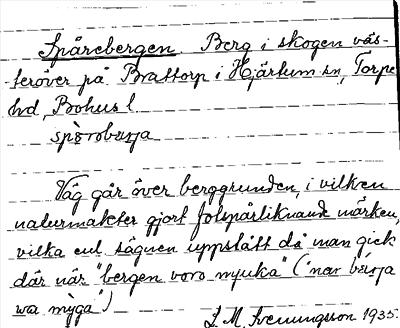 Spårebergen. Berg i skogen väs-
teröver på Brattorp i Hjärtum sn, Torpe
hd, Bohus l.
Väg går över berggrunden, i vilken
naturmakter gjort fotspårliknande märken,
vilka enl. sägnen uppstått då man gick
där när "bergen voro mjuka" ("nar bærja
wa mỳga")
L. M. Svenungsson 1935.